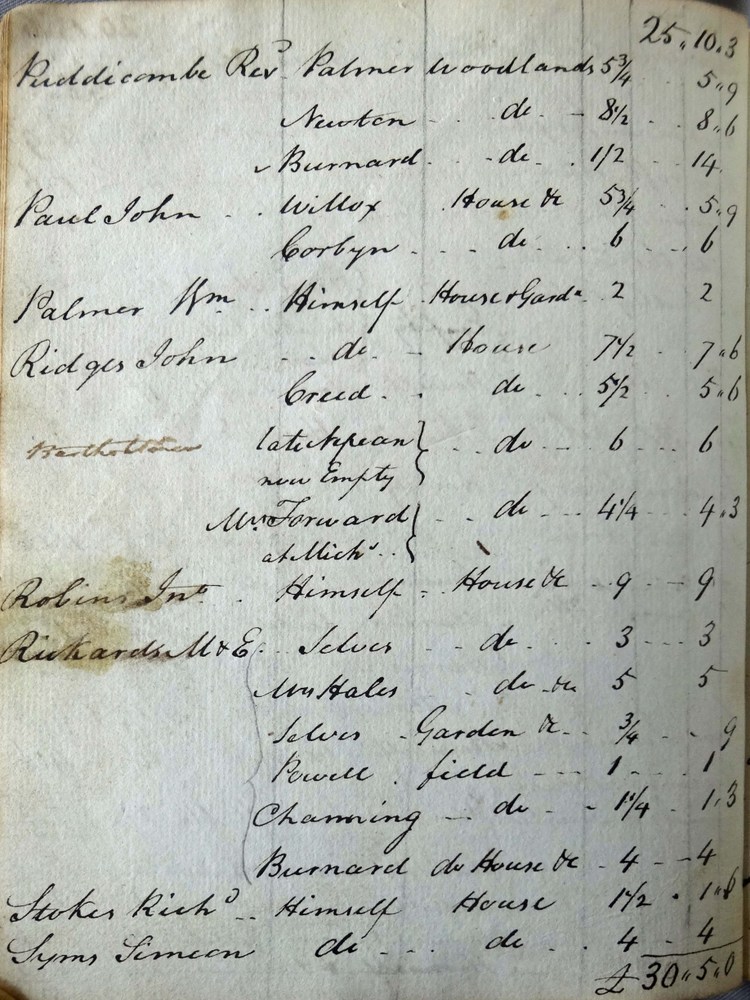 25,, 10,, 3
Puddicombe Revd Palmer Woodlands 5 3/4 5,, 9
Newton do 8 1/2 8,, 6
Burnard do 1/2 14
Paul John Willox House &c 5 3/4 5,, 9
Corbyn do 6 6
Palmer Wm Himself House & Gardn 2 2
Ridges John do House 7 1/2 7,, 6
Creed do 5 1/2 5,, 6
late Nepean do 6 6
now Empty
Mr Forward do 4 1/4 4,, 3
at Michs
Robins Jno Himself House &c 9 9
Rickards M & E Selves do 3 3
Mrs Hales do &c 5 5
Selves Garden &c 3/4 9
Powell field 1 1
Channing do 1 1/4 1,, 3
Burnard do House &c 4 4
Stokes Richd Himself House 1 1/2 1,, 6
Syms Simeon do do 4 4
£ 30,, 5,, 0